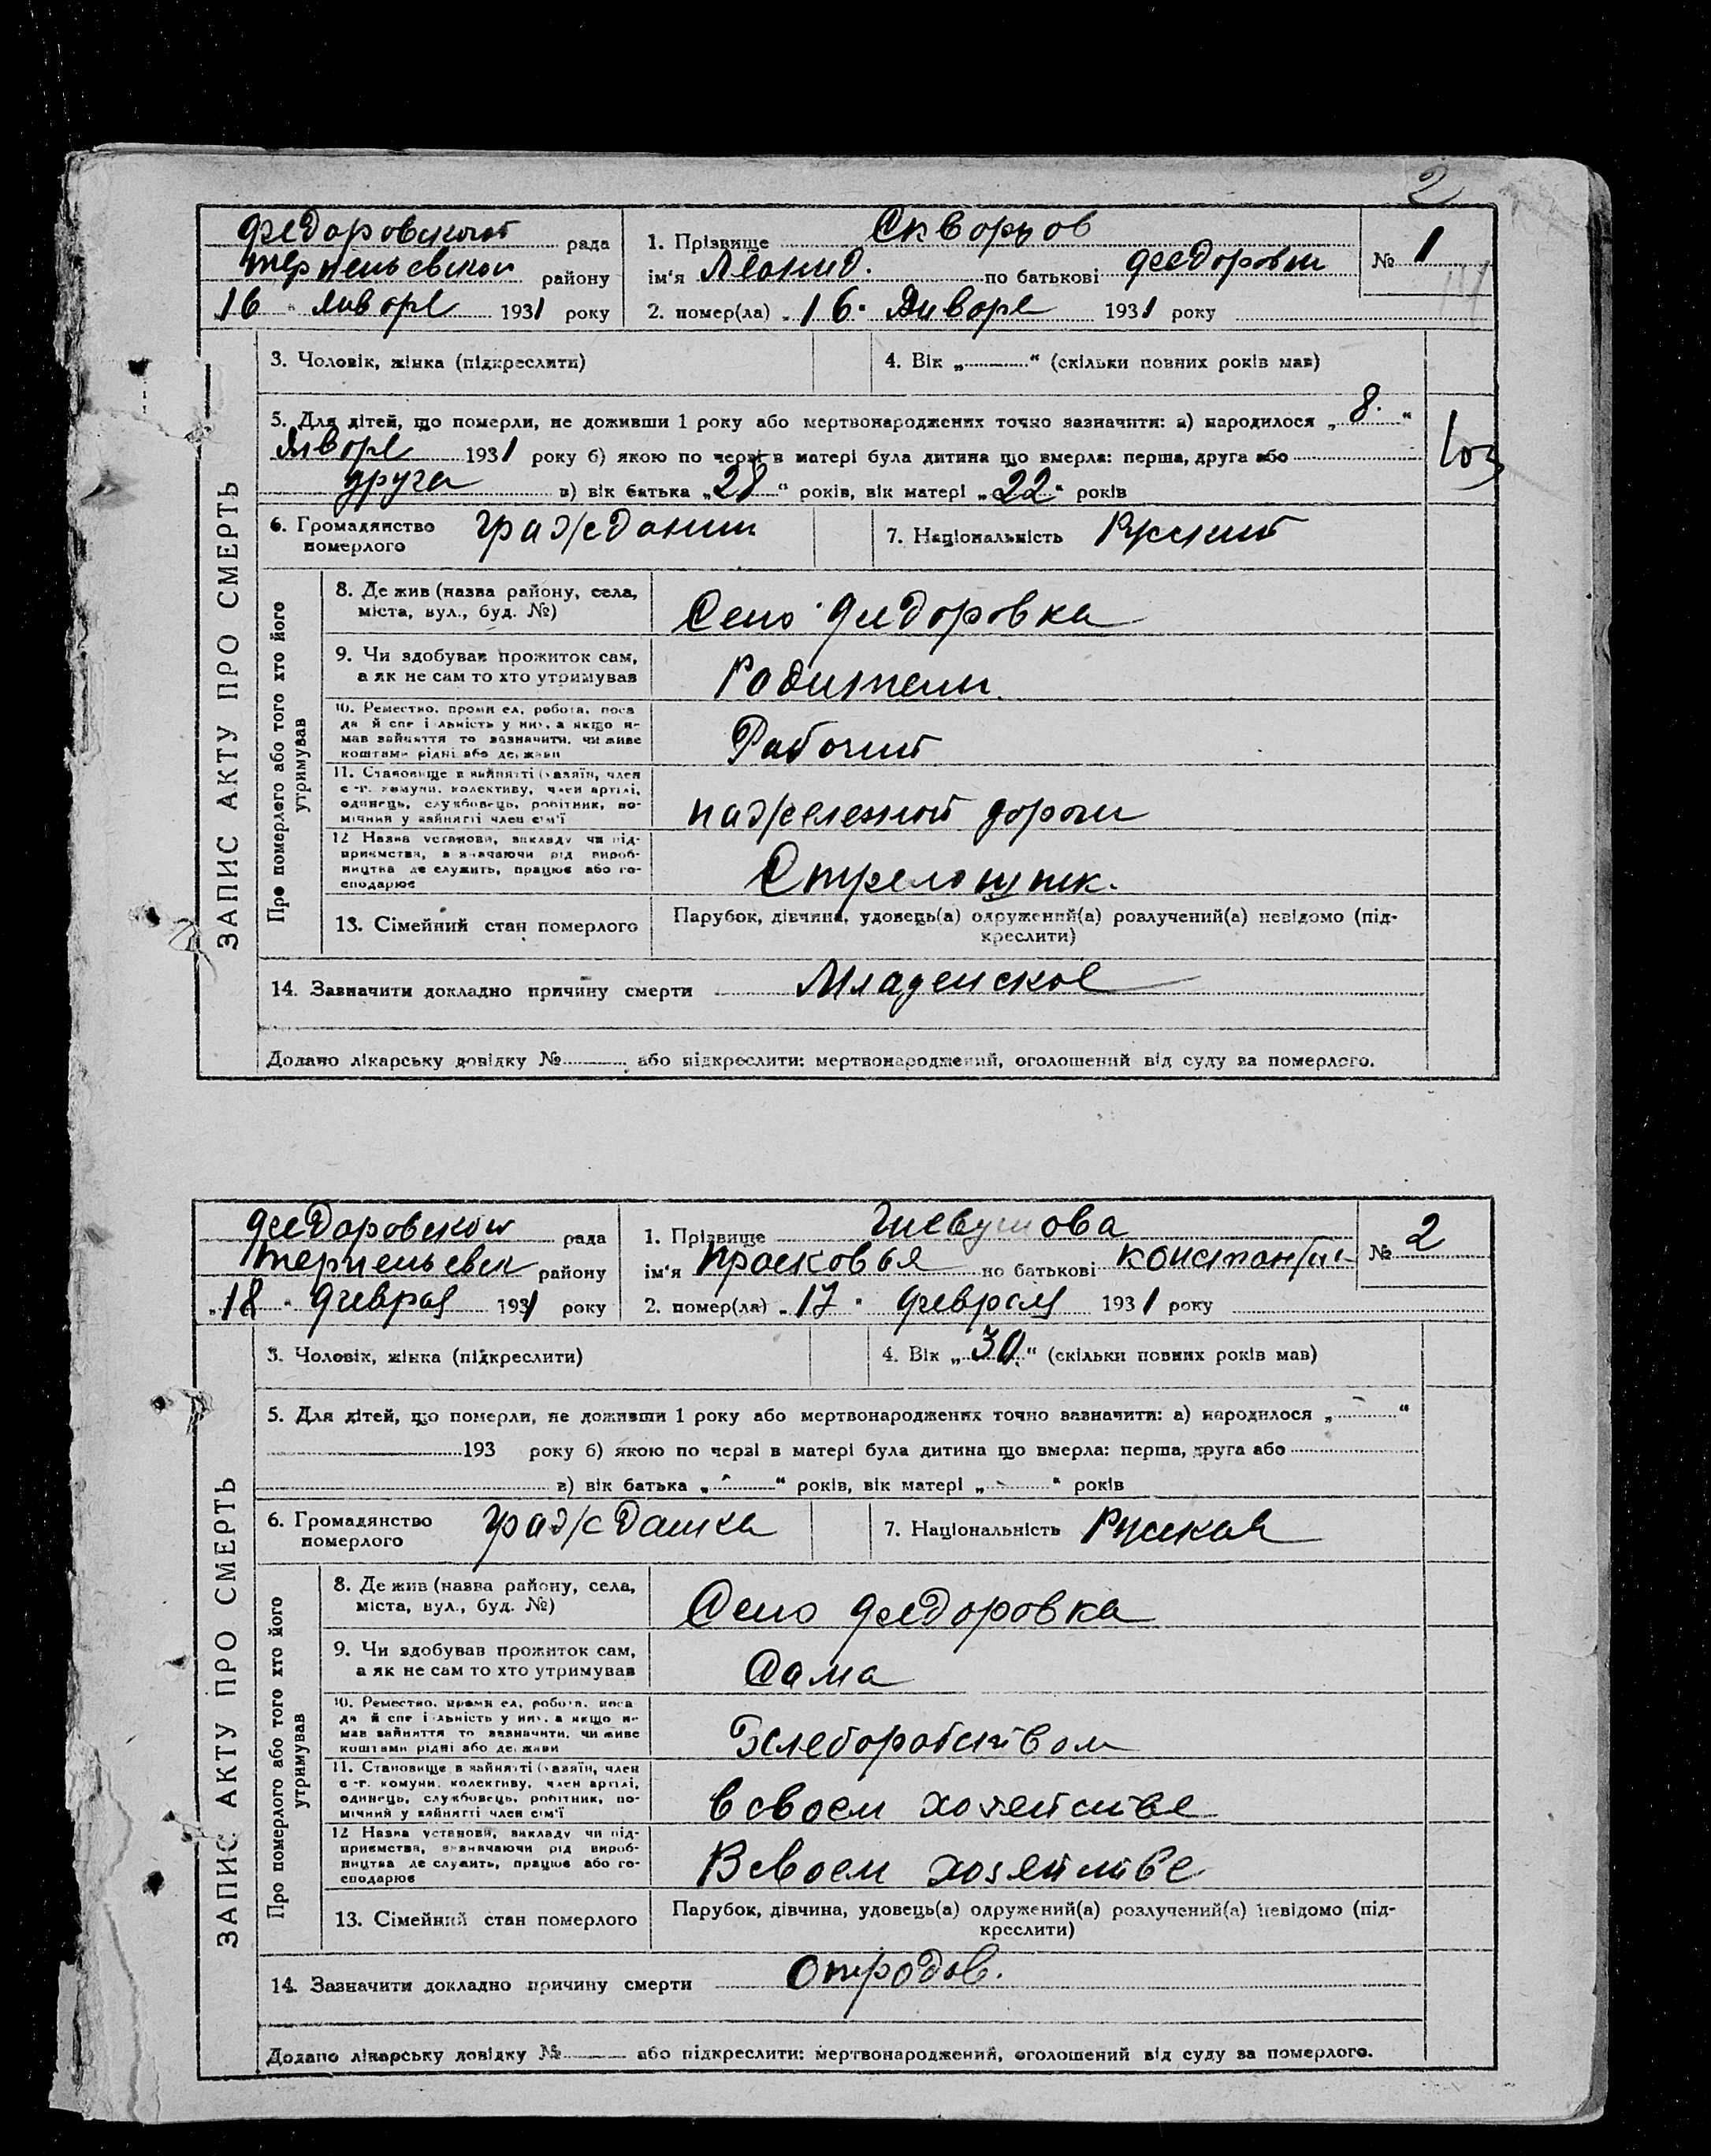 2
Федоровской рада
Терпеньевской району
16 " января 1931 року
1. Прізвище Скворцов
ім'я Леонид. по батькові Федоровии
2. помер(ла) „ 16 " Января 1931 року
№ 1
3. Чоловік, жінка (підкреслити)
4. Вік „ “ (скільки повних років мав)
5. Для дітей, що померли, не доживши 1 року або мертвонароджених точно зазначити: а) народилося „ 8. “
Января 1931 року б) якою по черзі в матері була дитина що вмерла: перша, друга або
друга в) вік батька „ 28 “ років, вік матері „ 22 “ років
103
6. Громадянство
померлого
гражданин
7. Національність Руский
ЗАПИС АКТУ ПРО СМЕРТЬ
Про померлего або того хто його
утримував
8. Де жив (назва району, села,
міста, вул., буд. №)
Село Федоровка
9. Чи здобував прожиток сам,
а як не сам то хто утримував
Родители
10. Ремество, промисел, робота, поса
да й спеціальність у них, а якщо не
мав зайняття то зазначити, чи живе
коштами рідні або держави
Рабочий
11. Становище в зайнятті (хазяїн, член
с-г. комуни, колективу, член артілі,
одинець, службовець, робітник, по-
мічний у зайнятті член сім'ї
на железной дороги
12 Назва установи, закладу чи під-
приємства, зазначаючи рід вироб-
ництва де служить, працює або го-
сподарює
13. Сімейний стан померлого
Парубок, дівчина, удовець(а) одружений(а) розлучений(а) невідомо (під-
креслити)
14. Зазначити докладно причину смерти Младенское
Додано лікарську довідку № або підкреслити: мертвонароджений, оголошений від суду за померлого.
Федоровской рада
Терпеньевск району
„ 18 " Февраля 1931 року
1. Прізвище
ім'я Просковья по батькові Константин
2. помер(ла) „ 17 " Февраля 1931 року
№ 2
3. Чоловік, жінка (підкреслити)
4. Вік „ 30. “ (скільки повних років мав)
5. Для дітей, що померли, не доживши 1 року або мертвонароджених точно зазначити: а) народилося „ “
193 року б) якою по черзі в матері була дитина що вмерла: перша, друга або
в) вік батька „ “ років, вік матері „ “ років
6. Громадянство
померлого
гражданка
7. Національність Руская
ЗАПИС АКТУ ПРО СМЕРТЬ
Про померлего або того хто його
утримував
8. Де жив (назва району, села,
міста, вул., буд. №)
Село Федоровка
9. Чи здобував прожиток сам,
а як не сам то хто утримував
Сама
10. Ремество, промисел, робота, поса
да й спеціальність у них, а якщо не
мав зайняття то зазначити, чи живе
коштами рідні або держави
Хлеборобством
11. Становище в зайнятті (хазяїн, член
с-г. комуни, колективу, член артілі,
одинець, службовець, робітник, по-
мічний у зайнятті член сім'ї
в своем хозяйстве
12 Назва установи, закладу чи під-
приємства, зазначаючи рід вироб-
ництва де служить, працює або го-
сподарює
В своем хозяйстве
13. Сімейний стан померлого
Парубок, дівчина, удовець(а) одружений(а) розлучений(а) невідомо (під-
креслити)
14. Зазначити докладно причину смерти Отродов.
Додано лікарську довідку № або підкреслити: мертвонароджений, оголошений від суду за померлого.